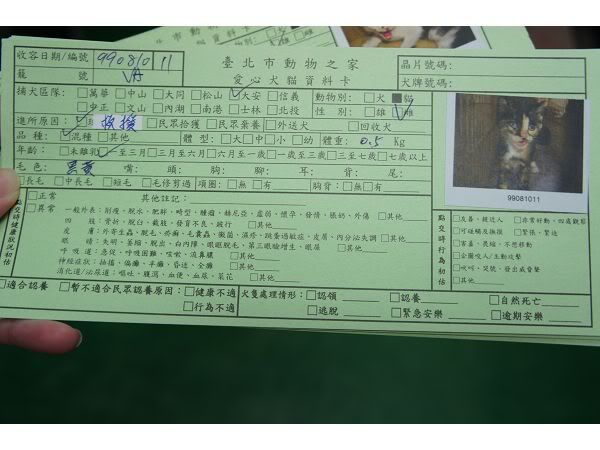 收容日期/編號 9908/0 11
籠 號 VA
臺北市動物之家
愛心犬貓資料卡
晶片號碼:
犬牌號碼:
捕犬區隊: □萬華 □中山 □大同 □松山 ☑大安 □信義
□中正 □文山 □內湖 □南港 □士林 □北投
動物別: □犬 ■貓
性 別: □雄 ☑雌
進所原因: 救援 □民眾拾獲 □民眾棄養 □外送犬 □回收犬
品 種: ☑混種 □其他 體 型: □大 □中 □小 □幼 體重: 0.5 Kg
年齡: □未離乳 ☑至三月 □三月至六月 □六月至一歲 □一歲至三歲 □三至七歲 □七歲以上
毛 色: 黑黃 嘴: 頭: 胸: 腳: 耳: 背: 尾:
□長毛 □中長毛 □短毛 □毛修剪過 項圈: □無 □有 胸背: □無 □有
99081011
點交時健康狀況初估
□正常
□異常
其他註記:
一般外表: 削瘦、脫水、肥胖、畸型、腫瘤、赫尼亞、虛弱、懷孕、發情、脹奶、外傷 □其他
四 肢: 骨折、脫臼、截肢、發育不良、跛行 □其他
皮 膚: 外寄生蟲、脫毛、疥癬、毛囊蟲、黴菌、濕疹、跳蚤過敏症、皮屑、內分泌失調 □其他
眼 睛: 失明、萎縮、脫出、白內障、眼瞼脫毛、第三眼瞼增生、眼屎 □其他
呼 吸 道: 急促、呼吸困難、咳嗽、流鼻膿 □其他
神經症狀: 抽搐、偏癱、半癱、昏迷、全癱 □其他
消化道/泌尿道: 嘔吐、腹瀉、血便、血尿、菜花 □其他
點交時行為初估
□友善、親近人 □非常好動、四處觀察
□可碰觸及撫摸 □緊張、緊迫
□害羞、畏縮、不想移動
□企圖咬人/互動攻擊
□吠叫、哭號、發出威脅聲
□其他
□適合認養 □暫不適合民眾認養原因: □健康不適
□行為不適
犬隻處理情形: □認領 □認養 □自然死亡
□逃脫 □緊急安樂 □逾期安樂